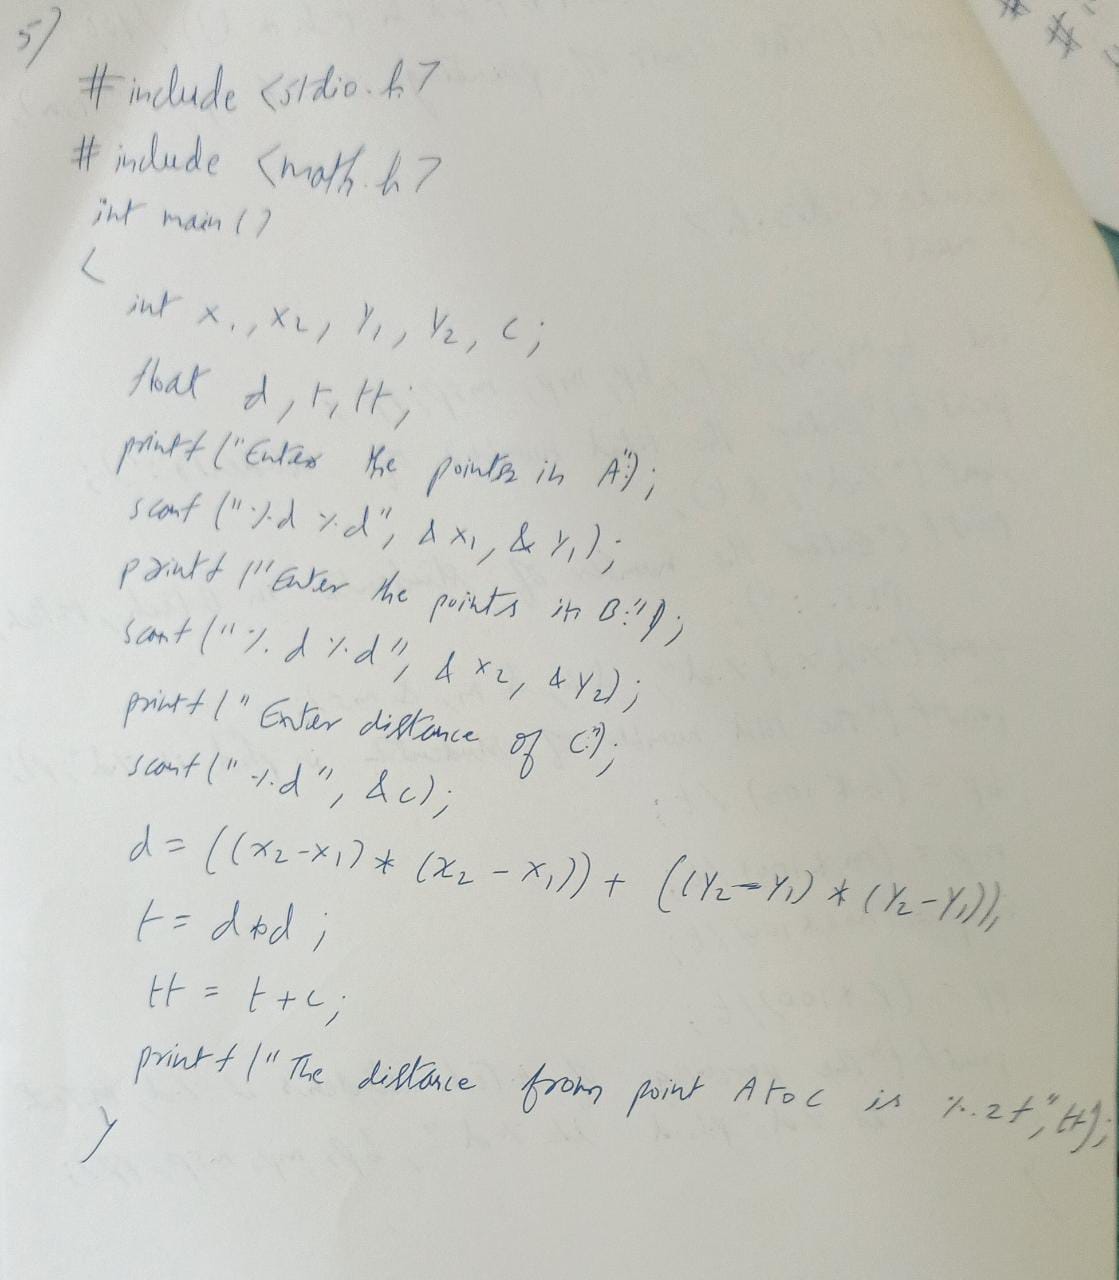 5)
#include <stdio.h>
#include <math.h>
int main()
{
int x1, x2, y1, y2, c;
float d, t, tt;
printf("Enter the points in A:");
scanf("%d %d", &x1, &y1);
printf("Enter the points in B:");
scanf("%d %d", &x2, &y2);
printf("Enter distance of C:");
scanf("%d", &c);
d = ((x2-x1) * (x2-x1)) + ((y2-y1) * (y2-y1));
t = d*d;
tt = t+c;
printf("The distance from point A to C is %.2f", tt);
}